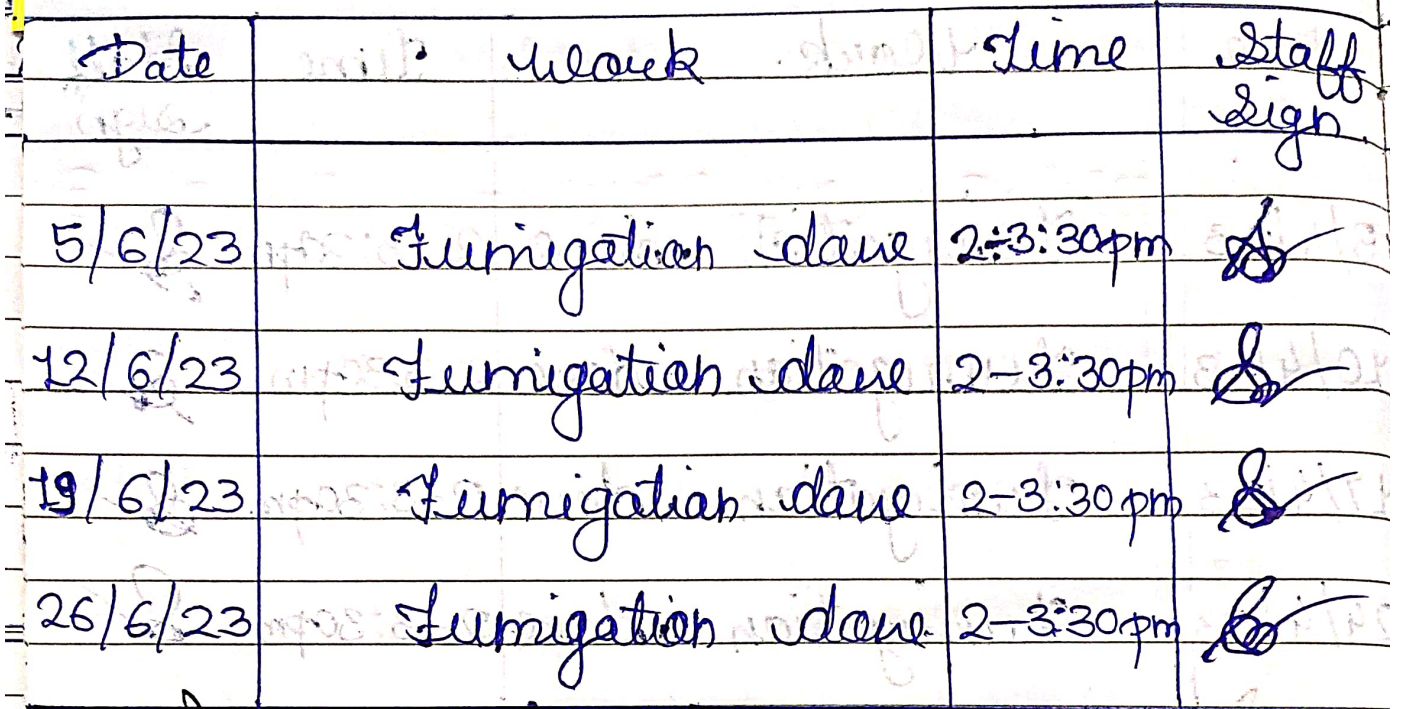 Date Work Time Staff
Sign
5/6/23 Fumigation done 2-3:30pm
12/6/23 Fumigation done 2-3:30pm
19/6/23 Fumigation done 2-3:30pm
26/6/23 Fumigation done 2-3:30pm